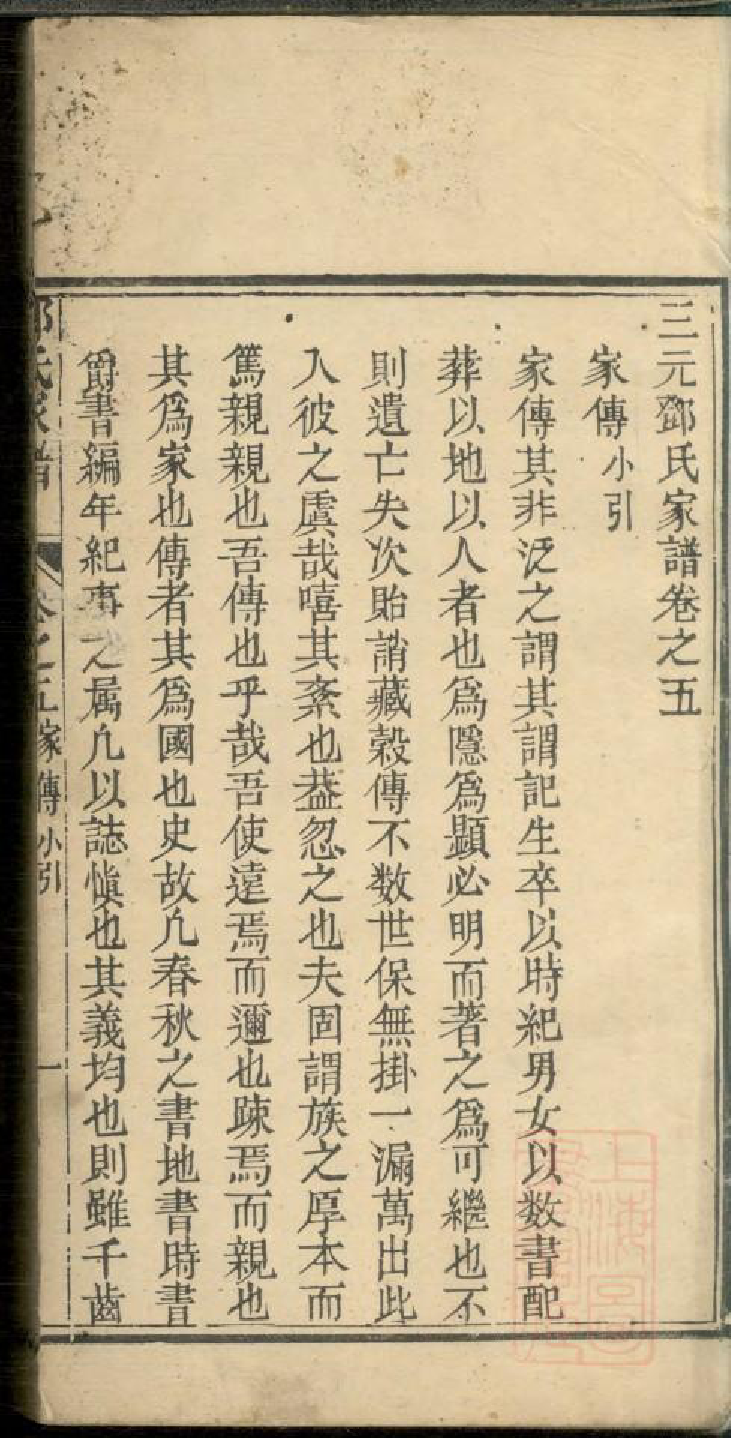 三元鄧氏家譜卷之五
家傳小引
家傳其非泛之謂其謂記生卒以時紀男女以数書配
葬以地以人者也爲隱爲顯必明而著之爲可繼也不
則遺亡失次貽誚藏榖傳不数世保無掛一漏萬出此
入彼之虞哉嘻其紊也葢忽之也夫固謂族之厚本而
篤親親也吾傳也乎哉吾使遠焉而邇也踈焉而親也
其爲家也傳者其爲國也史故凢春秋之書地書時書
爵書編年紀事之属凢以誌愼也其義均也則雖千齒
鄧氏家譜 卷之五家傳小引 一
上海圖書館藏